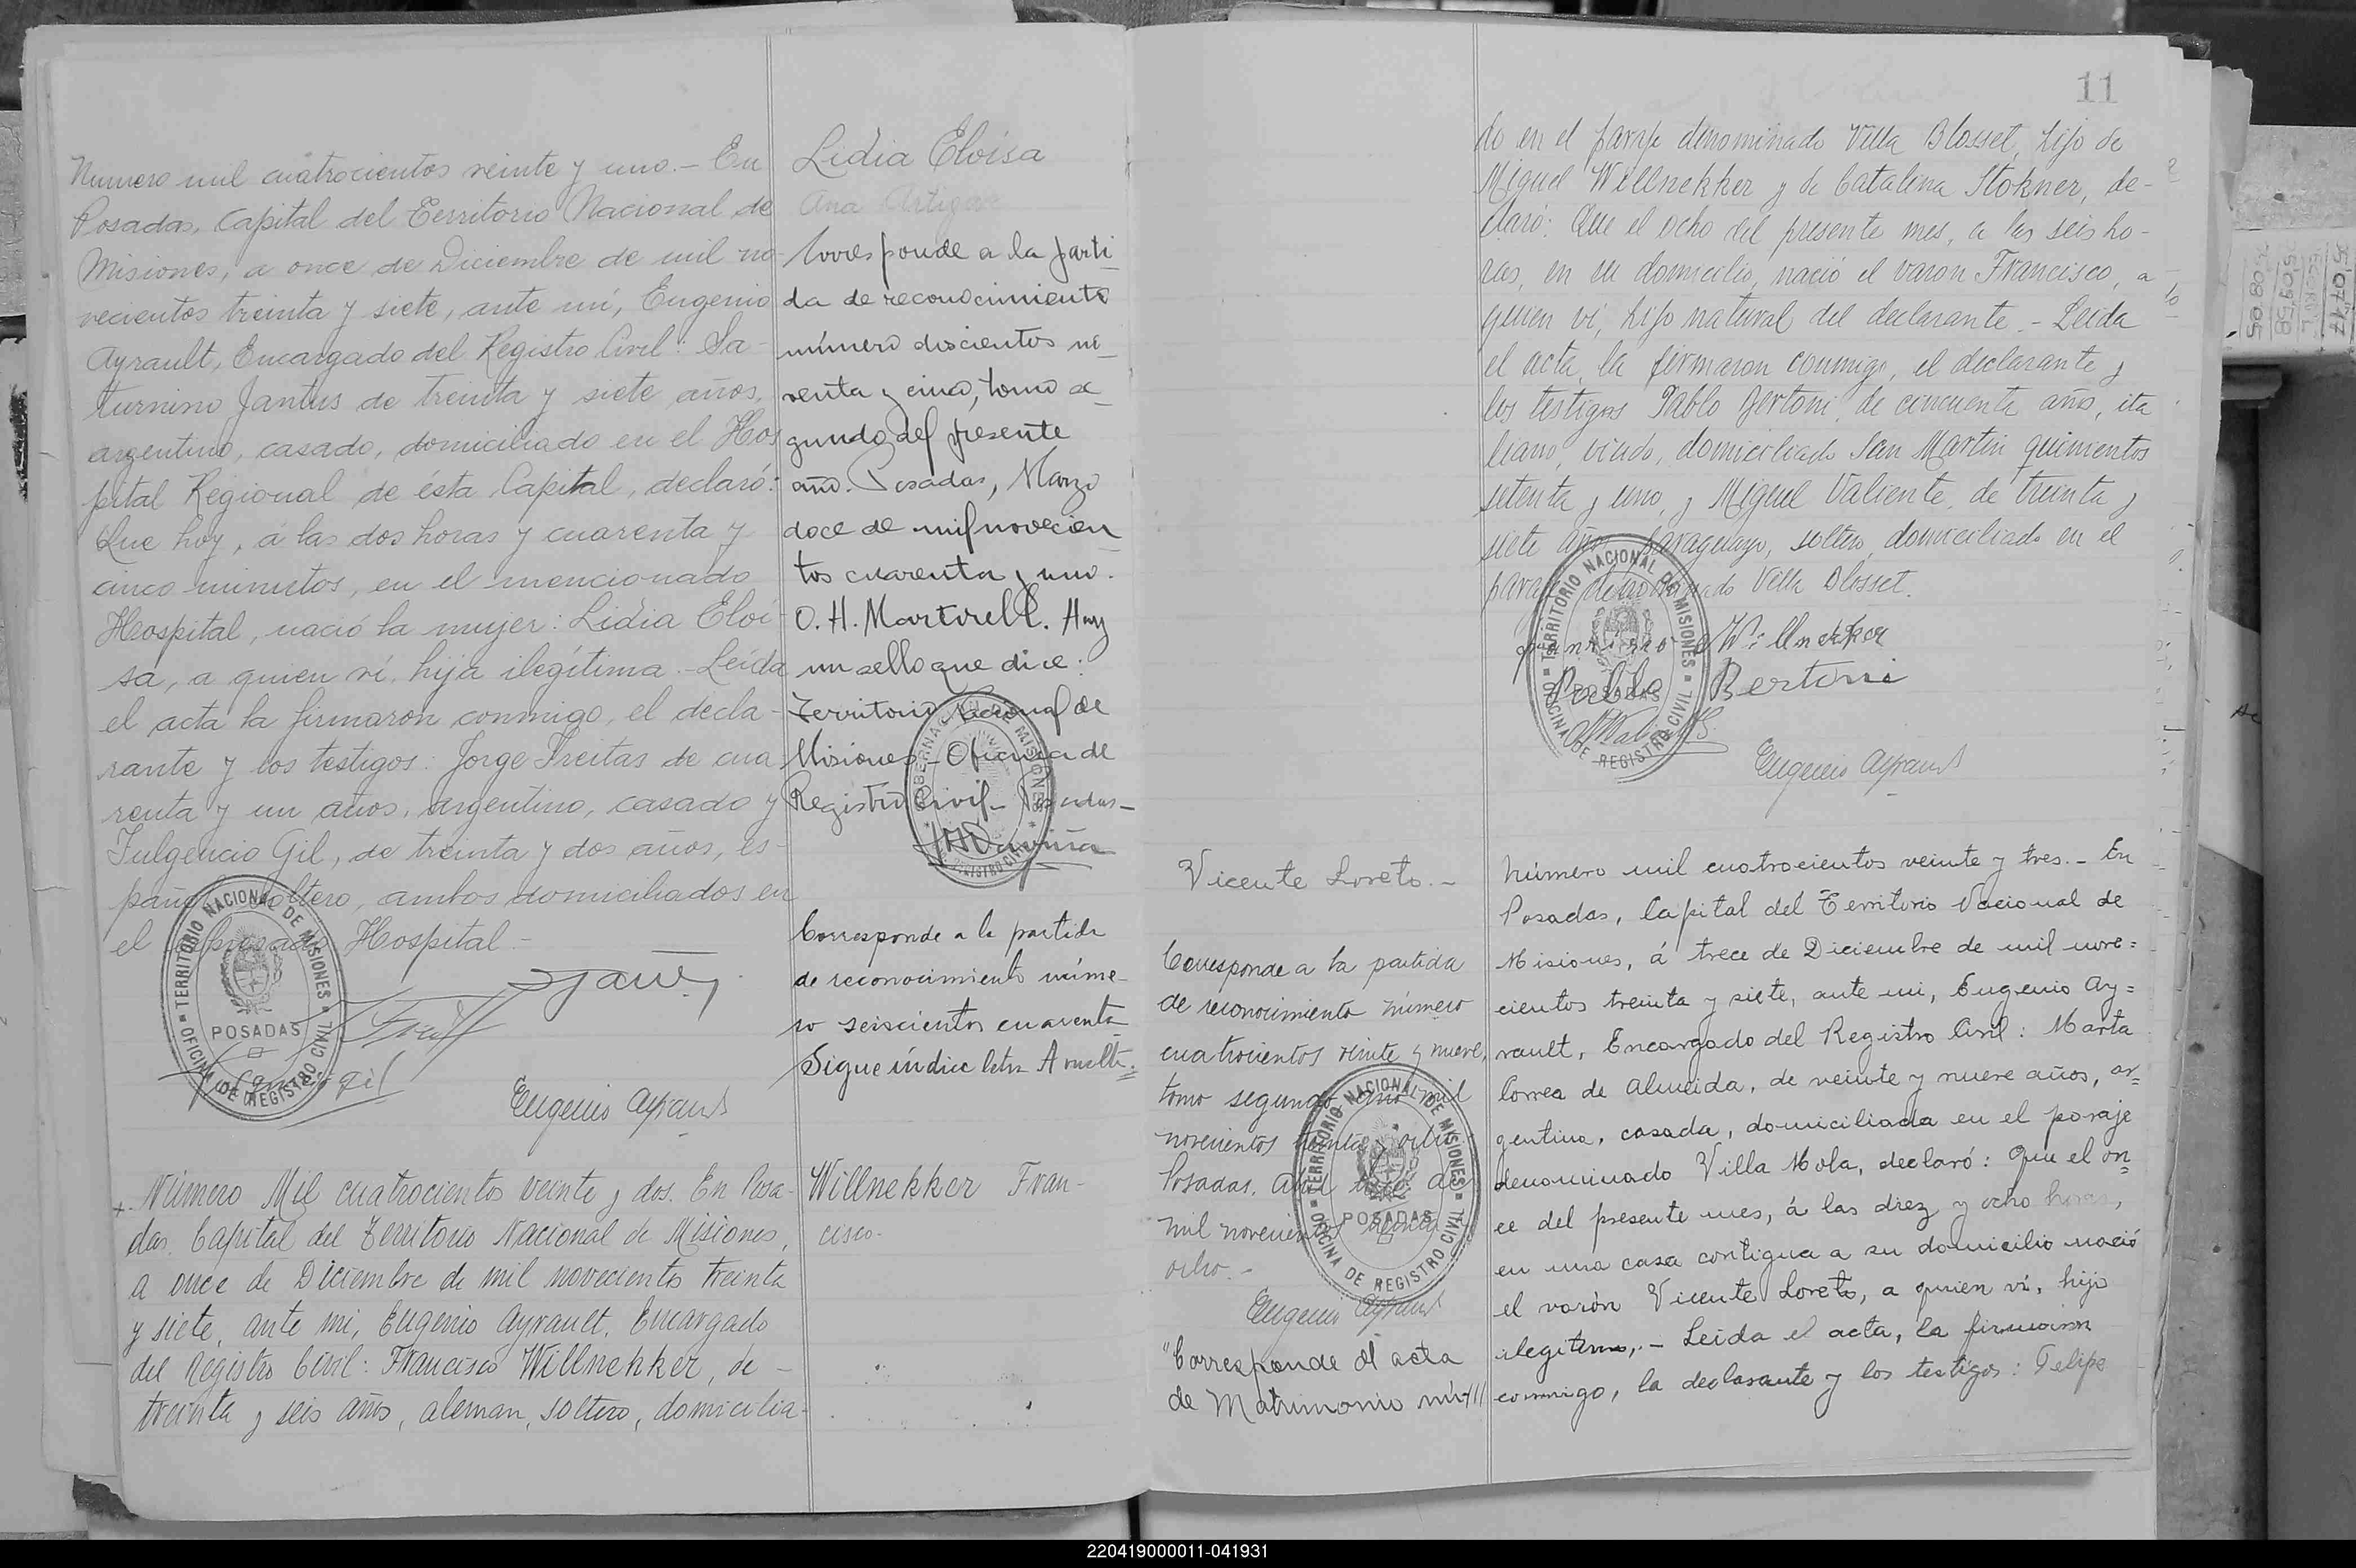 Número mil cuatrocientos veinte y uno.- En
Posadas, Capital del Territorio Nacional de
Misiones, a once de Diciembre de mil no-
vecientos treinta y siete, ante mí, Eugenio
Ayrault, Encargado del Registro Civil: Sa-
turnino Jantus de treinta y siete años,
argentino, casado, domiciliado en el Hos
pital Regional de ésta Capital, declaró:
Que hoy, á las dos horas y cuarenta y
cinco minutos, en el mencionado
Hospital, nació la mujer: Lidia Eloí-
sa, a quien ví, hija ilegítima.- Leída
el acta la firmaron conmigo, el decla-
rante y los testigos: Jorge Freitas de cua
renta y un años, argentino, casado y
Fulgencio Gil, de treinta y dos años, es-
pañol, soltero, ambos domiciliados en
el expresado Hospital.-
TERRITORIO NACIONAL DE MISIONES
POSADAS
OFICINA DE REGISTRO CIVIL
Eugenio Ayrault
Número Mil cuatrocientos veinte y dos. En Posa-
das, Capital del Territorio Nacional de Misiones,
a once de Diciembre de mil novecientos treinta
y siete, ante mi, Eugenio Ayrault, Encargado
del Registro Civil: Francisco Willnekker, de-
treinta y seis años, aleman, soltero, domicilia-
Lidia Eloísa
Ana Artigas
Corresponde a la parti-
da de reconocimiento
número doscientos no-
venta y cinco, tomo se-
gundo del presente
año. Posadas, Marzo
doce de mil novecien
tos cuarenta y uno.
O. H. Martirell. Hay
un sello que dice:
Territorio Nacional de
Misiones - Oficina de
Registro Civil - Posadas-
GOBERNACION DE MISIONES
REGISTRO CIVIL
Corresponde a la partida
de reconocimiento núme-
ro seiscientos cuarenta
Sigue índice letra A vuelta
Willnekker Fran-
cisco-
11
do en el paraje denominado Villa Blosset, hijo de
Miguel Willnekker y de Catalina Stokner, de-
claró: Que el ocho del presente mes, a las seis ho-
ras, en su domicilio, nació el varon Francisco, a
quien ví, hijo natural del declarante.- Leida
el acta, la firmaron conmigo, el declarante y
los testigos Pablo Bertoni, de cincuenta años, ita
liano, viudo, domiciliado San Martín quinientos
setenta y uno, y Miguel Valiente, de treinta y
siete años, paraguayo, soltero, domiciliado en el
paraje denominado Villa Blosset.
TERRITORIO NACIONAL DE MISIONES
POSADAS
OFICINA DE REGISTRO CIVIL
Willnekker
Pablo Bertoni
Eugenio Ayrault
Vicente Loreto.-
Corresponde a la partida
de reconocimiento número
cuatrocientos veinte y nueve,
tomo segundo año mil
novecientos treinta y ocho
Posadas, Abril de
mil novecientos treinta y
ocho.-
TERRITORIO NACIONAL DE MISIONES
POSADAS
OFICINA DE REGISTRO CIVIL
Eugenio Ayrault
"Corresponde al acta
de Matrimonio nú-///
Número mil cuatrocientos veinte y tres.- En
Posadas, Capital del Territorio Nacional de
Misiones, á trece de Diciembre de mil nove=
cientos treinta y siete, ante mi, Eugenio Ay=
rault, Encargado del Registro Civil: Marta
Correa de Almeida, de veinte y nueve años, ar=
gentina, casada, domiciliada en el paraje
denominado Villa Mola, declaró: Que el on=
ce del presente mes, á las diez y ocho horas,
en una casa contigua a su domicilio nació
el varón Vicente Loreto, a quien ví, hijo
ilegitimo,.- Leida el acta, la firmaron
conmigo, la declarante y los testigos: Felipe
220419000011-041931